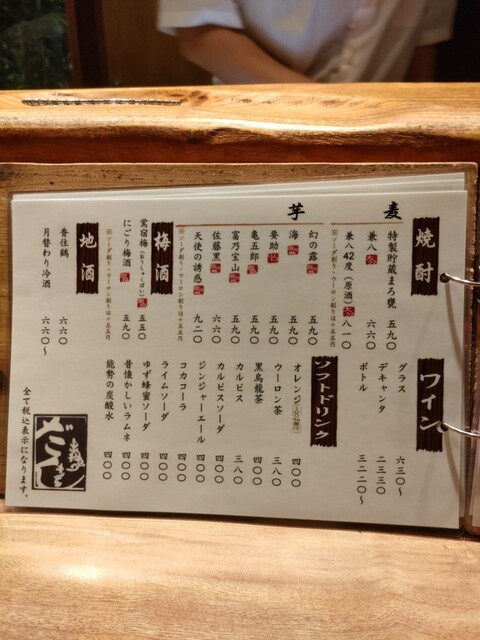 焼酎
麦
特製貯蔵まろ甕 五九〇
兼八 六六〇
兼八42度(原酒) 八一〇
※ソーダ割り・ウーロン割りは十五五円
芋
幻の露 五九〇
海 五九〇
要助 五九〇
亀五郎 五九〇
富乃宝山 五九〇
佐藤黒 六六〇
天使の誘惑 九二〇
※ソーダ割り・ウーロン割りは十五五円
梅酒
鴬宿梅(おうしゅくばい) 五五〇
にごり梅酒 五九〇
※ソーダ割り・ウーロン割りは十五五円
地酒
香住鶴 六六〇
月替わり冷酒 六六〇〜
ワイン
グラス 六三〇〜
デキャンタ 二三三〇
ボトル 三二二〇〜
ソフトドリンク
オレンジ 四〇〇
ウーロン茶 三八〇
黒烏龍茶 四〇〇
カルピス 三八〇
カルピスソーダ 四〇〇
ジンジャーエール 四〇〇
コカコーラ 四〇〇
ライムソーダ 四〇〇
ゆず蜂蜜ソーダ 四〇〇
昔懐かしいラムネ 四〇〇
能勢の炭酸水 四〇〇
全て税込表示になります。